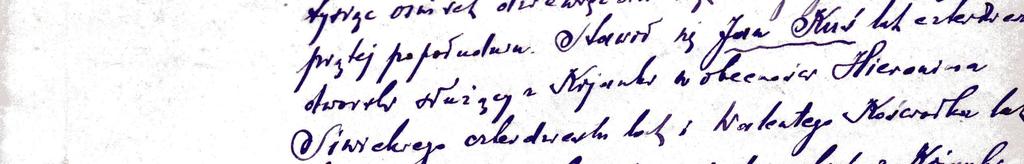 tysiąc ośmset dziewięćdz
piątej popołudniu. Stawił się Jan Kuś lat czterdzieści
dworski służący z Kijanki w obecności Hieronima
Siwickiego czterdzieści lat i Walentego Kościołka lat